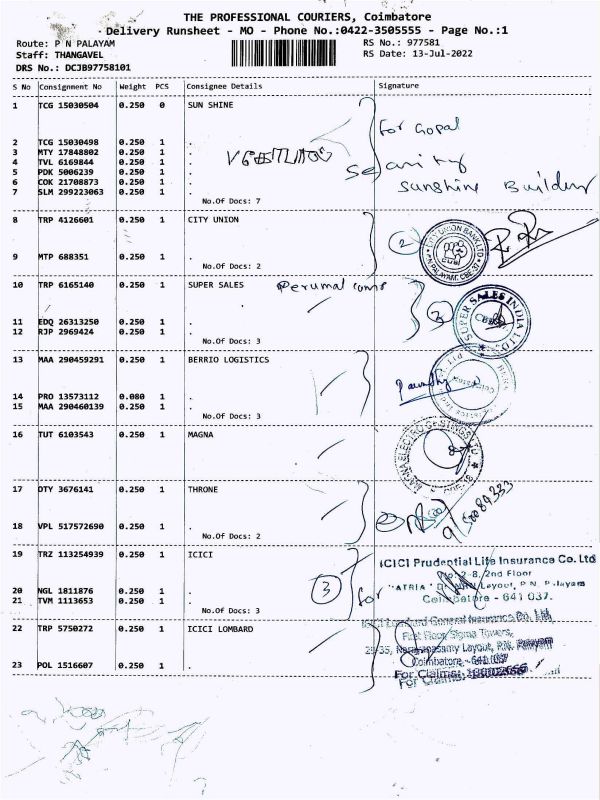 THE PROFESSIONAL COURIERS, Coimbatore
Delivery Runsheet - MO - Phone No.:0422-3505555 - Page No.:1
Route: P N PALAYAM RS No.: 977581
Staff: THANGAVEL RS Date: 13-Jul-2022
DRS No.: DCJB97758101
S No Consignment No Weight PCS Consignee Details Signature
1 TCG 15030504 0.250 0 SUN SHINE
for Gopal
2 TCG 15030498 0.250 1 .
3 MTY 17848802 0.250 1 .
4 TVL 6169844 0.250 1 .
5 PDK 5006239 0.250 1 .
6 COK 21708873 0.250 1 .
7 SLM 299223063 0.250 1 .
Sunshine Builders
No.Of Docs: 7
8 TRP 4126601 0.250 1 CITY UNION
2
CITY UNION BANK LTD
P.N.PALAYAM, CBE-37
CUB
9 MTP 688351 0.250 1 .
No.Of Docs: 2
10 TRP 6165140 0.250 1 SUPER SALES
Perumal
3
SUPER SALES INDIA LTD.
11 EDQ 26313250 0.250 1 .
12 RJP 2969424 0.250 1 .
No.Of Docs: 3
13 MAA 290459291 0.250 1 BERRIO LOGISTICS
14 PRO 13573112 0.080 1 .
15 MAA 290460139 0.250 1 .
No.Of Docs: 3
16 TUT 6103543 0.250 1 MAGNA
MAGNA ELECTRO CASTINGS LTD
17 OTY 3676141 0.250 1 THRONE
18 VPL 517572690 0.250 1 .
No.Of Docs: 2
19 TRZ 113254939 0.250 1 ICICI
ICICI Prudential Life Insurance Co. Ltd
2nd Floor
20 NGL 1811876 0.250 1 .
3
for
"ATRIA" Layout, P.N. Palayam
21 TVM 1113653 0.250 1 .
Coimbatore - 641 037.
No.Of Docs: 3
22 TRP 5750272 0.250 1 ICICI LOMBARD
ICICI Lombard General Insurance Co. Ltd.
First Floor Sigma Towers,
Layout, P.N. Palayam
Coimbatore - 641 037
23 POL 1516607 0.250 1 .
For Claims:
For Claims: